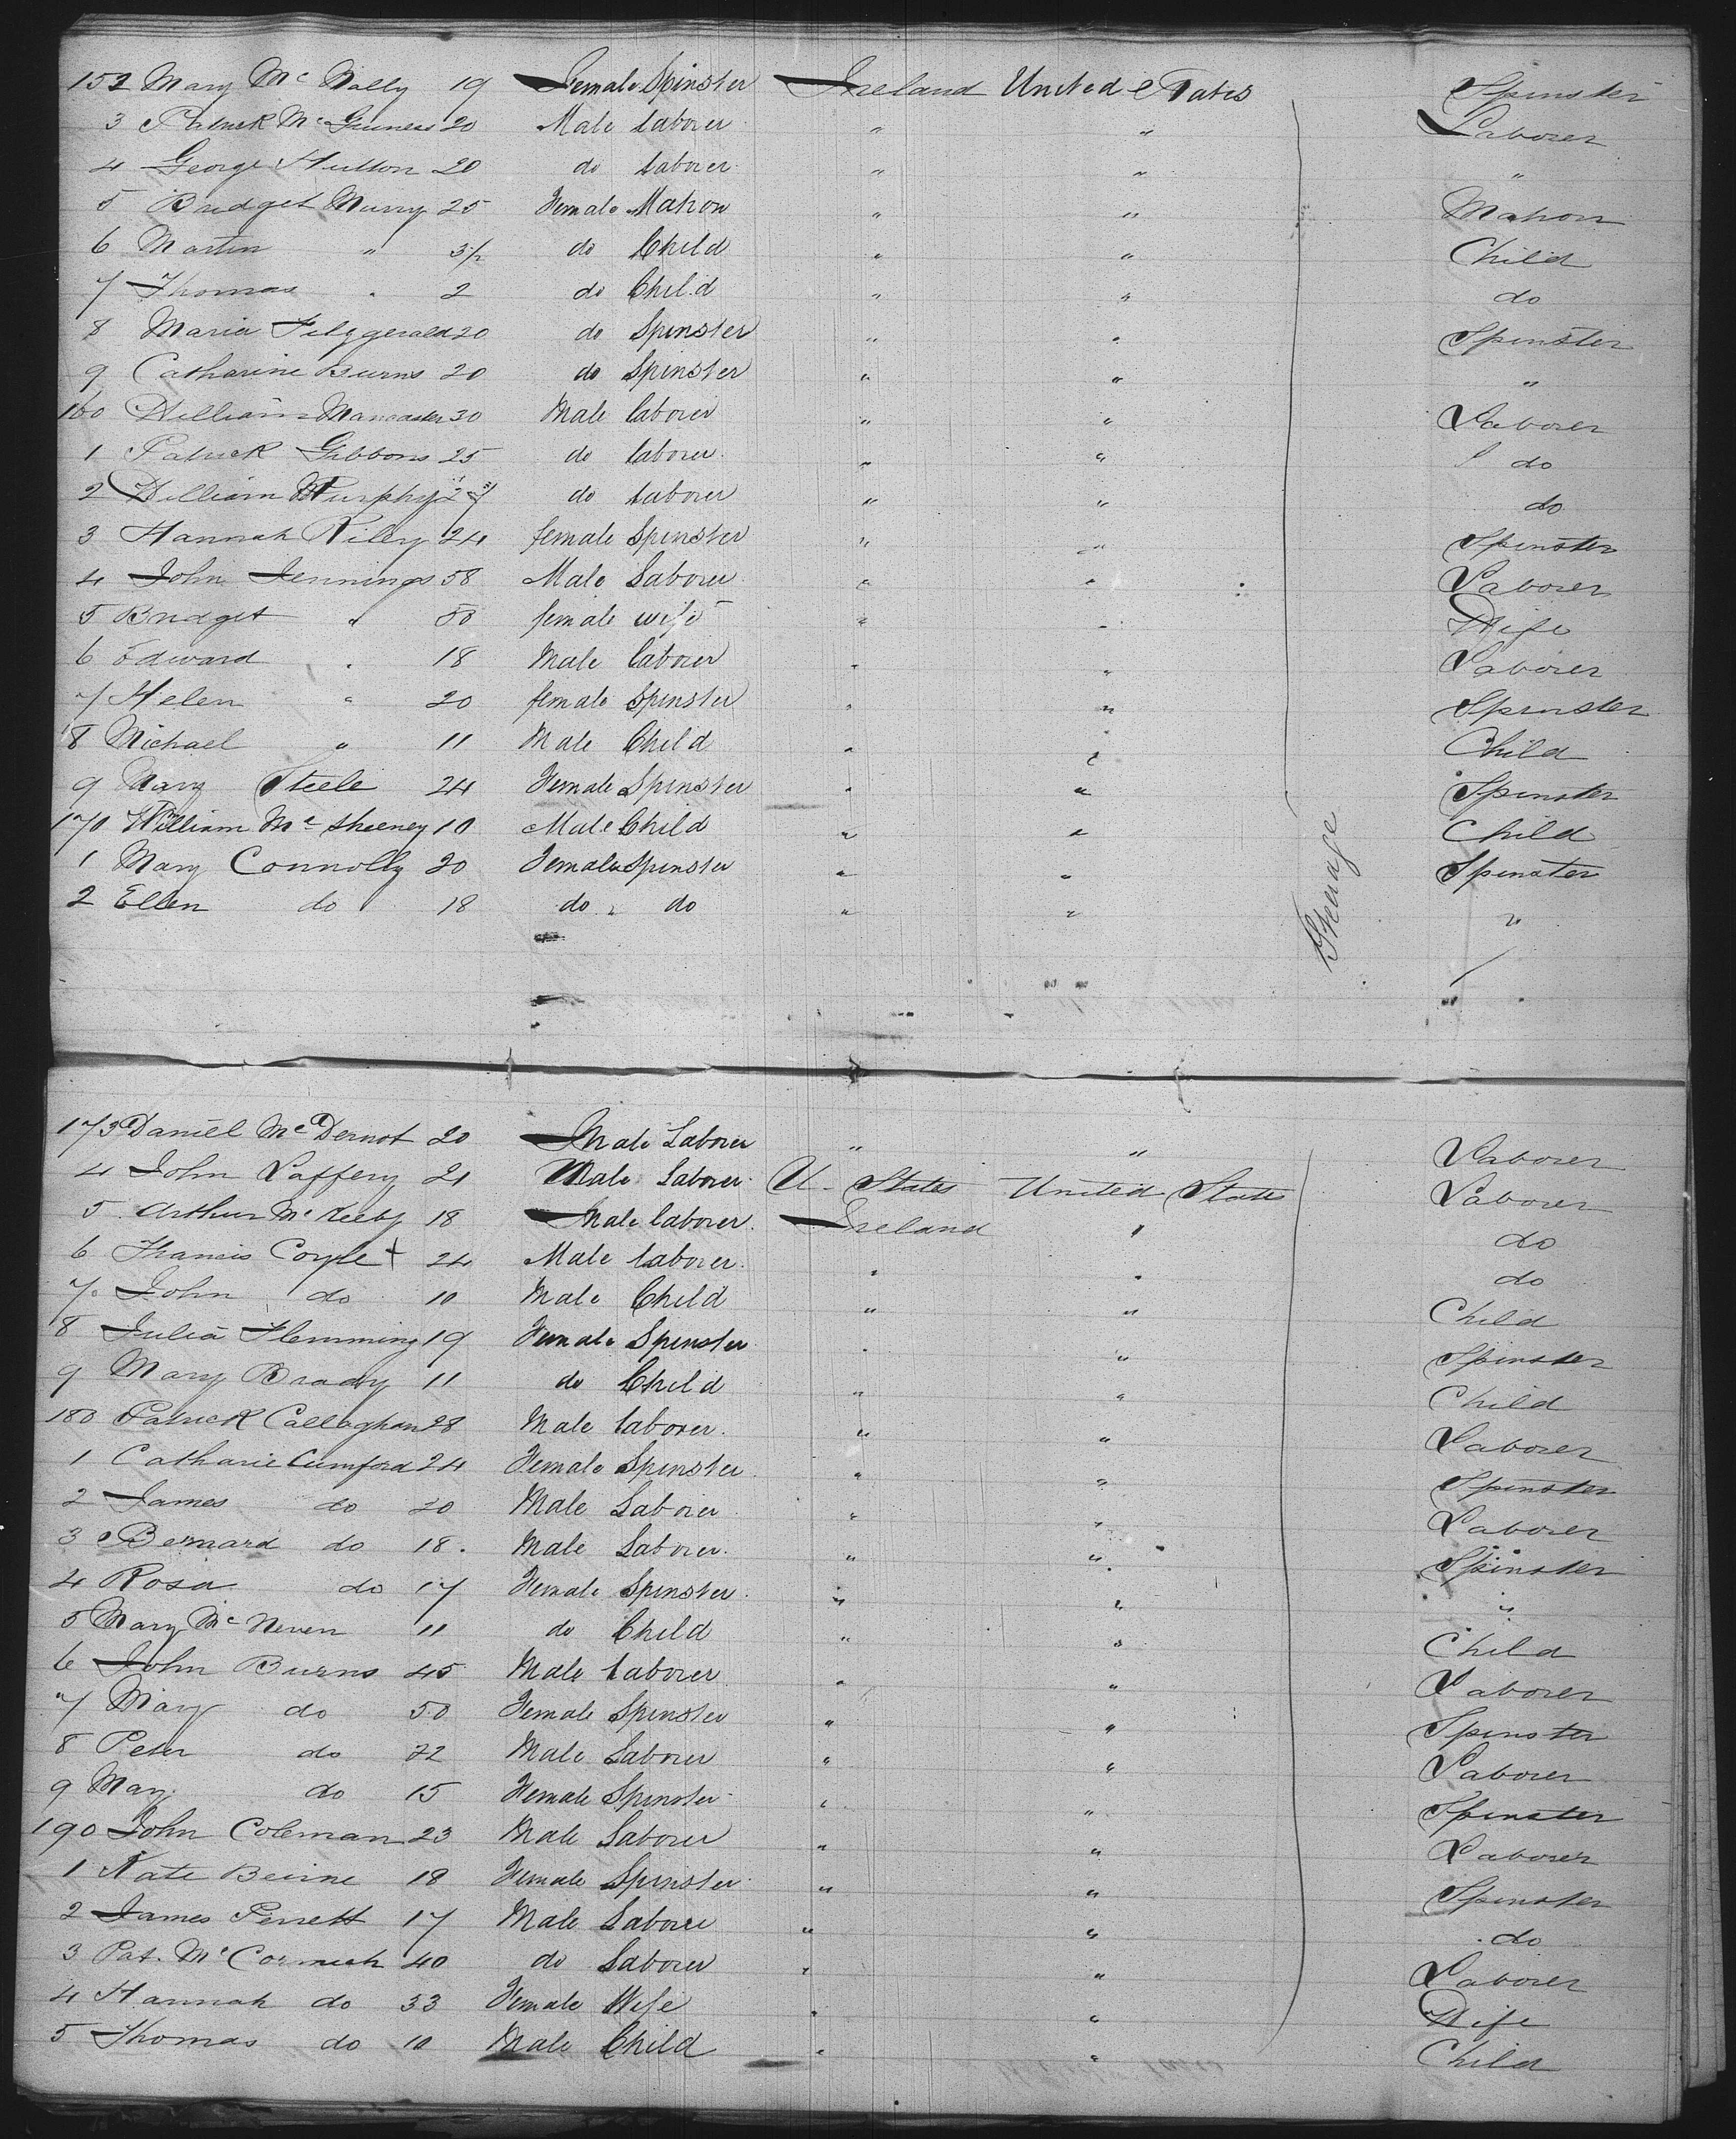 152 Mary Mc Nally 19 Female Spinster Ireland United States Spinster
3 Patrick Mc Guness 20 Male laborer " " Laborer
4 George Hutton 20 do laborer " " "
5 Bridget Murry 25 Female Matron " " Matron
6 Martin " 3/12 do Child " " Child
7 Thomas " 2 do Child " " do
8 Maria Fitzgerald 20 do Spinster " " Spinster
9 Catharine Burns 20 do Spinster " " "
160 William 30 Male laborer " " Laborer
1 Patrick Gibbons 25 do laborer " " do
2 William Murphy do laborer " " do
3 Hannah Riley 24 female Spinster " " Spinster
4 John Jennings 58 Male Laborer " " Laborer
5 Bridget " 50 female wife " " Wife
6 Edward " 18 Male laborer " " Laborer
7 Helen " 20 female Spinster " " Spinster
8 Michael " 11 Male Child " " Child
9 Mary Steele 24 Female Spinster " " Spinster
170 William Mc Sheeney 10 Male Child " " Child
1 Mary Connolly 20 Female Spinster " " Spinster
2 Ellen do 18 do " do " " "
Sterage
173 Daniel Mc Dermot 20 Male Laborer " " Laborer
4 John Laffery 21 Male Laborer U. States United States Laborer
5 Arthur Mc 18 Male laborer Ireland " do
6 Francis Coyle + 24 Male laborer " " do
7 John do 10 Male Child " " Child
8 Julia Flemming 19 Female Spinster " " Spinster
9 Mary Brady 11 do Child " " Child
180 Patrick Callaghan 28 Male laborer " " Laborer
1 Catharie Cumford 24 Female Spinster " " Spinster
2 James do 20 Male Laborer " " Laborer
3 Bernard do 18 Male Laborer " " Spinster
4 Rosa do 17 Female Spinster " " "
5 Mary Mc Neven 11 do Child " " Child
6 John Burns 45 Male laborer " " Laborer
7 Mary do 50 Female Spinster " " Spinster
8 Peter do 22 Male Laborer " " Laborer
9 Mary do 15 Female Spinster " " Spinster
190 John Coleman 23 Male Laborer " " Laborer
1 Kate Beirne 18 Female Spinster " " Spinster
2 James Perrett 17 Male Laborer " " do
3 Pat. Mc Cormick 40 do Laborer " " Laborer
4 Hannah do 33 Female Wife " " Wife
5 Thomas do 10 Male Child " " Child